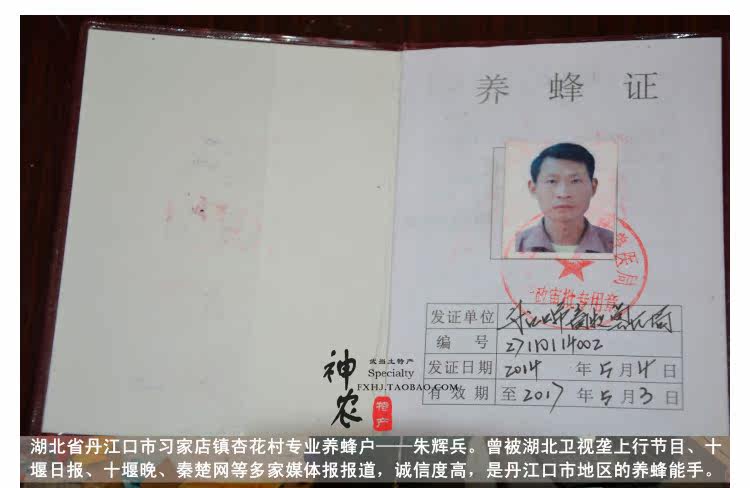 养 蜂 证
兽医局
政审批专用章
发证单位 丹江口市畜牧兽医局
编 号 27110114002
发证日期 2014 年 5 月 4 日
有 效 期 至 2017 年 5 月 3 日
神农
武当土特产
Specialty
FXHJ.TAOBAO.COM
特产
湖北省丹江口市习家店镇杏花村专业养蜂户——朱辉兵。曾被湖北卫视垄上行节目、十
堰日报、十堰晚、秦楚网等多家媒体报报道，诚信度高，是丹江口市地区的养蜂能手。